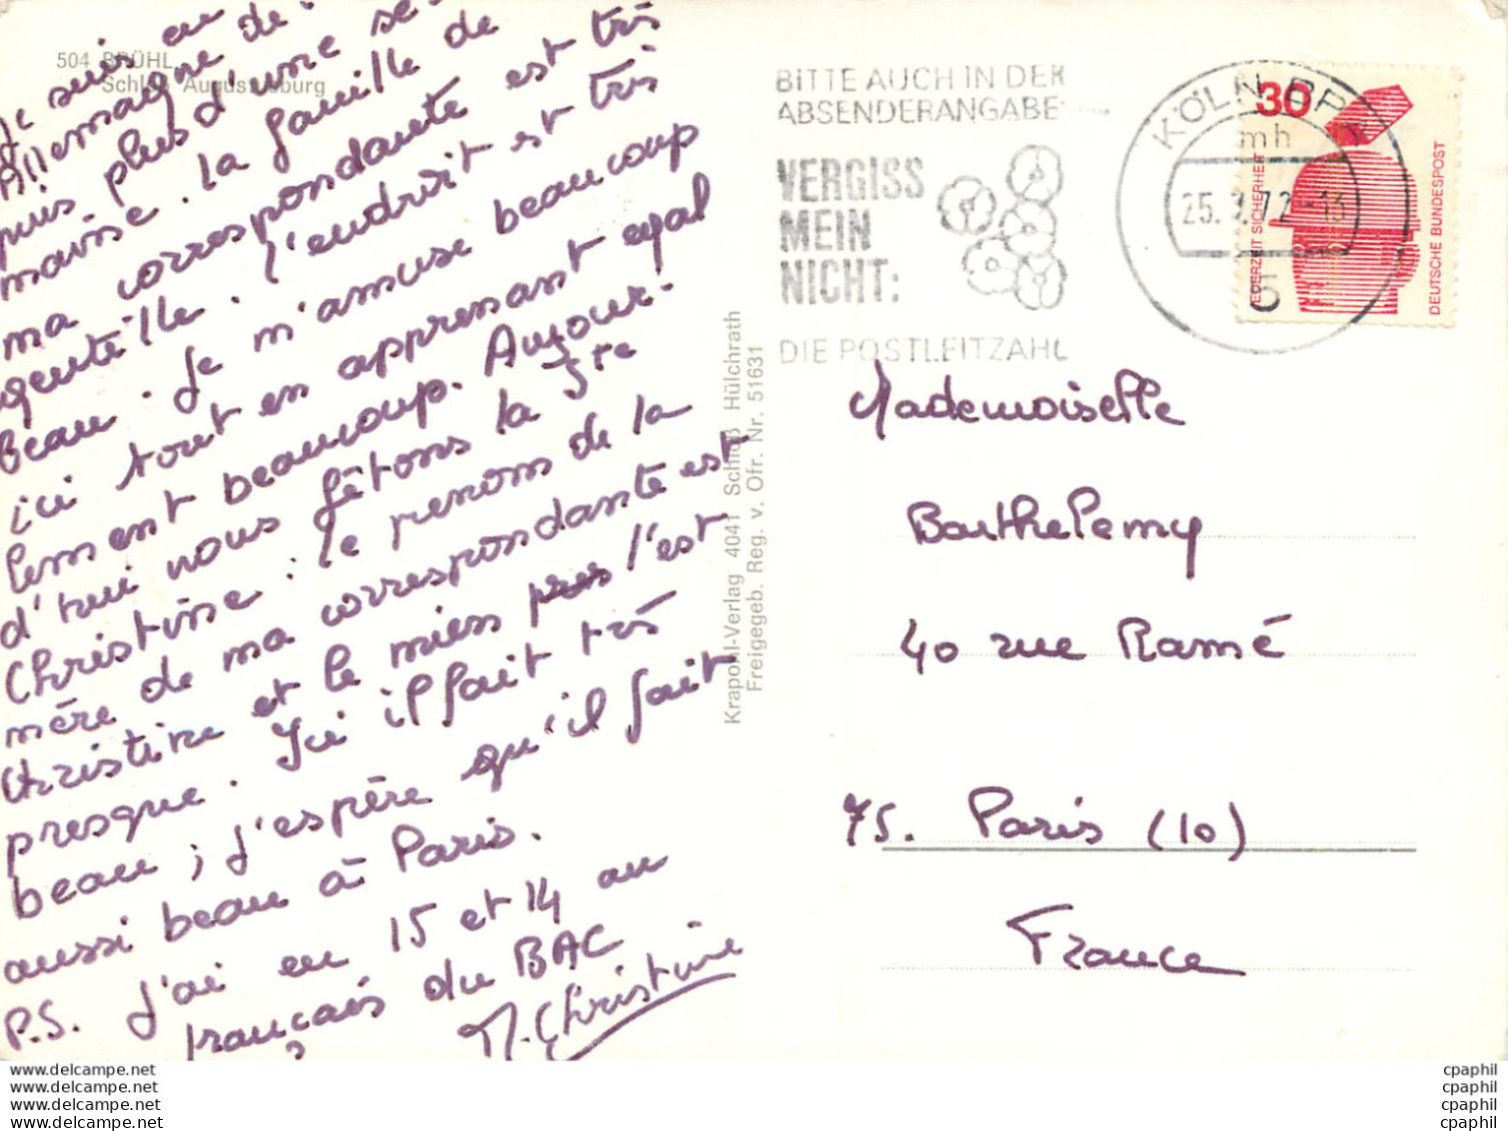 504 BRÜHL
Schloß Augustusburg
Je suis en
Allemagne de-
puis plus d'une se-
maine. la famille de
ma correspondante est très
gentille. l'endroit est très
beau. Je m'amuse beaucoup
ici tout en apprenant égal
lement beaucoup. Aujour-
d'hui nous fêtons la Ste
Christine : le prénom de la
mère de ma correspondante est
Christine et le mien l'est
presque. Ici il fait très
beau ; j'espère qu'il fait
aussi beau à Paris.
P.S. J'ai eu 15 et 14 au
français du BAC
M. Christine
Krapohl-Verlag 4041 Schloß Hülchrath
Freigegeb. Reg. v. Ofr. Nr. 51631
BITTE AUCH IN DER
ABSENDERANGABE
VERGISS
MEIN
NICHT:
DIE POSTLEITZAHL
KÖLN BP
mh
25. 7.72-13
5
30
JEDERZEIT SICHERHEIT
DEUTSCHE BUNDESPOST
Mademoiselle
Barthelemy
40 rue Ramé
75. Paris (10)
France
www.delcampe.net
www.delcampe.net
www.delcampe.net
www.delcampe.net
cpaphil
cpaphil
cpaphil
cpaphil